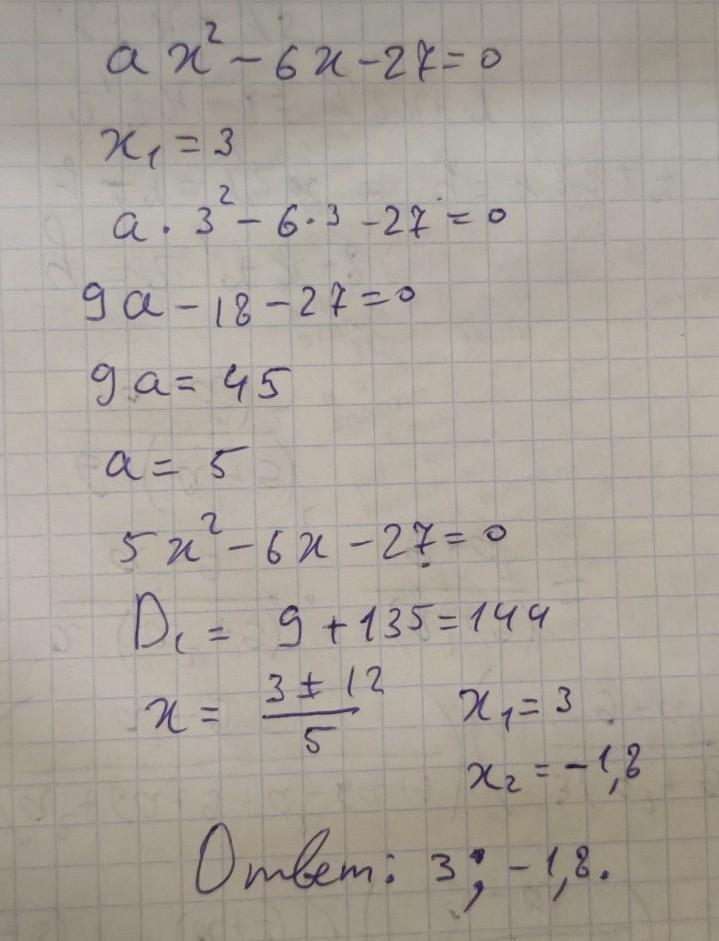 ax² - 6x - 27 = 0
x₁ = 3
a · 3² - 6 · 3 - 27 = 0
9a - 18 - 27 = 0
9a = 45
a = 5
5x² - 6x - 27 = 0
D₁ = 9 + 135 = 144
x = (3 ± 12)/5 x₁ = 3
x₂ = -1,8
Ответ: 3; -1,8.